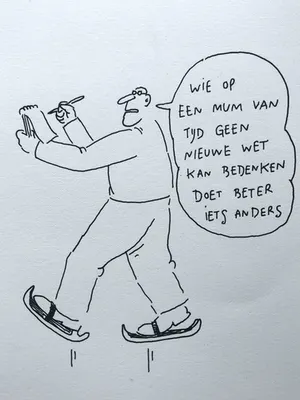 WIE OP
EEN MUM VAN
TYD GEEN
NIEUWE WET
KAN BEDENKEN
DOET BETER
IETS ANDERS